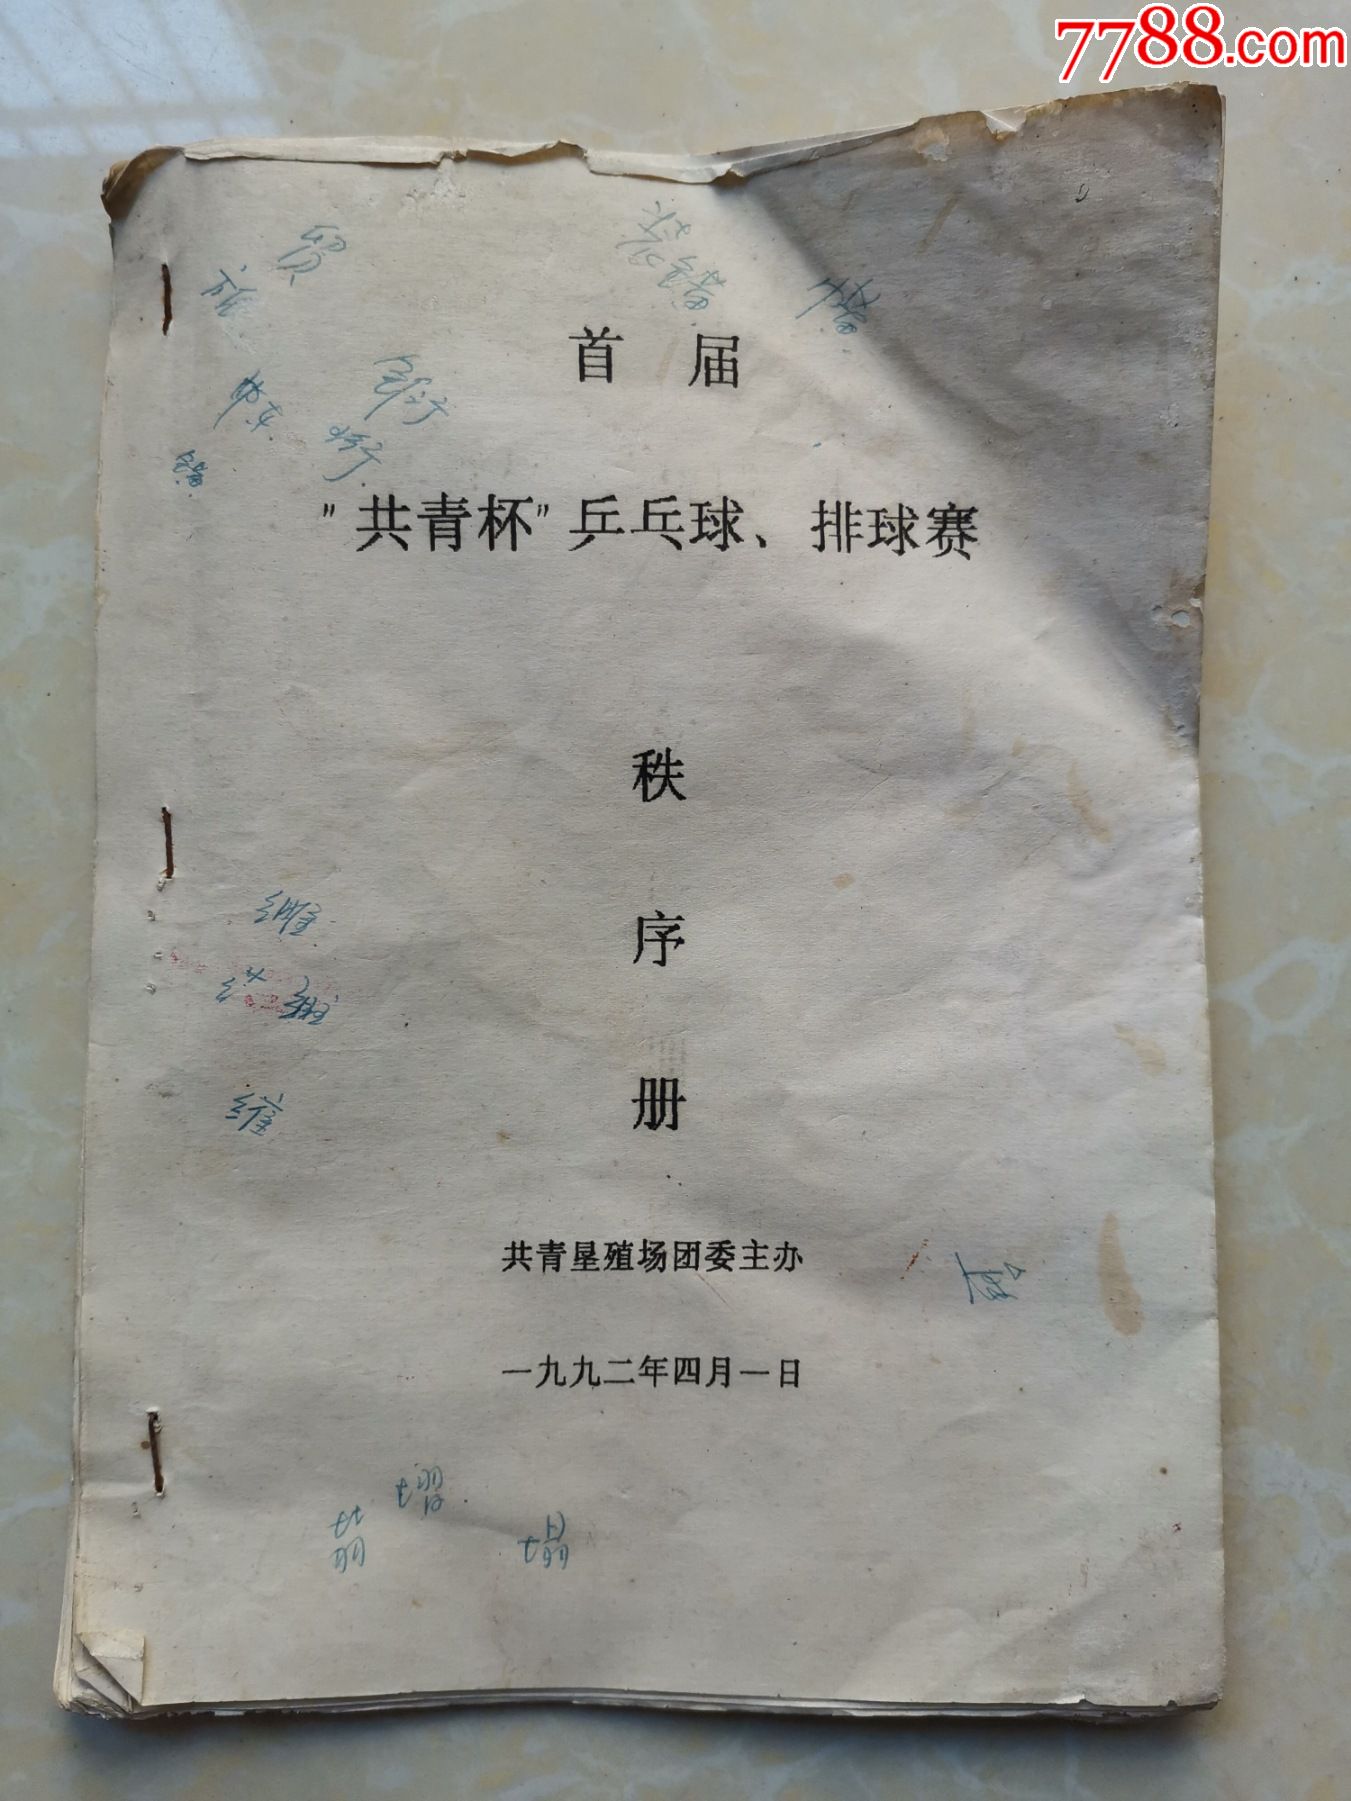 7788.com
贸
首届
"共青杯"乒乓球、排球赛
秩
序
册
维
维
共青垦殖场团委主办
一九九二年四月一日